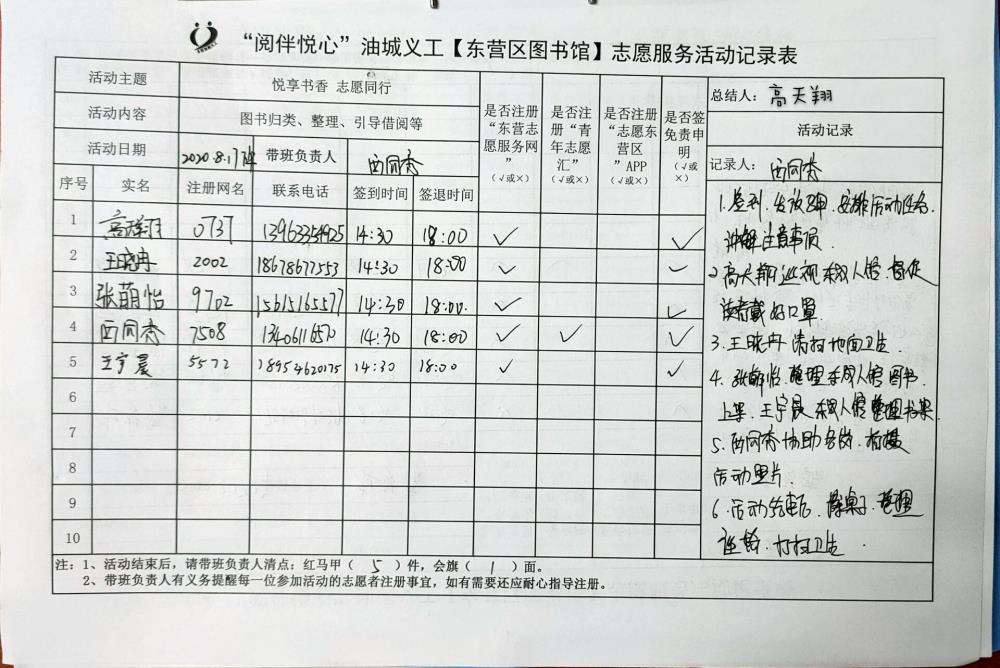 “阅伴悦心”油城义工【东营区图书馆】志愿服务活动记录表
活动主题 悦享书香 志愿同行
活动内容 图书归类、整理、引导借阅等
活动日期 2020.8.17 带班负责人
是否注册“东营志愿服务网”(√或×)
是否注册“青年志愿汇”(√或×)
是否注册“志愿东营区”APP(√或×)
是否签免责申明(√或×)
序号 实名 注册网名 联系电话 签到时间 签退时间
1 高天翔 0737 13963354925 14:30 18:00 √ √
2 王晓冉 2002 18678677553 14:30 18:00 √ √
3 张萌怡 9702 15615165577 14:30 18:00. √ √
4 7508 13406116570 14:30 18:00 √ √ √
5 王宇晨 5572 18954620175 14:30 18:00 √ √
6
7
8
9
10
总结人：高天翔
活动记录
记录人：
1.签到.发放马甲.安排活动任务.
讲解注意事项
2.高天翔巡视成人馆.督促
读者戴好口罩.
3.王晓冉清扫地面卫生.
4.张萌怡.整理成人馆图书.
上架.王宇晨成人馆整理书架.
5.协助各岗.拍摄
活动照片.
6.活动结束后.擦桌子.整理
座椅.打扫卫生
注：1、活动结束后，请带班负责人清点：红马甲（ 5 ）件，会旗（ 1 ）面。
2、带班负责人有义务提醒每一位参加活动的志愿者注册事宜，如有需要还应耐心指导注册。